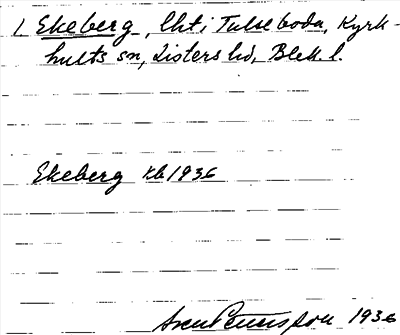 1 Ekeberg, lht i Tulseboda, Kyrk-
hults sn, Listers hd, Blek. l.
Ekeberg kb 1936
1936